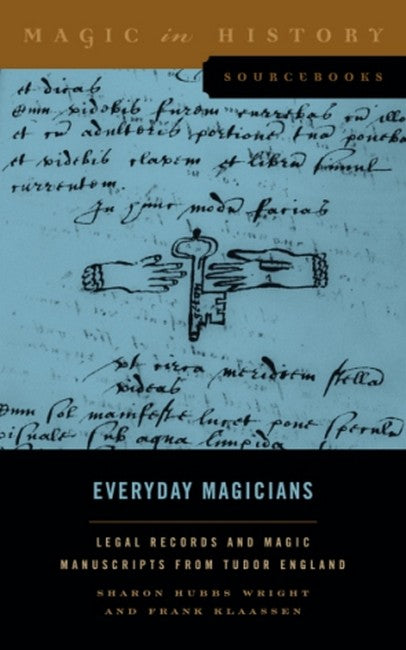 MAGIC in HISTORY
SOURCEBOOKS
et dicas
furem
et cũ adulteris portionē tuā poneba
et videbis clavem et librũ simul
currentem.
In hunc modũ facias
ut circa meridiem stella
videas
Dum sol manifeste lucet pone speculũ
visuale sub aqua limpida
EVERYDAY MAGICIANS
LEGAL RECORDS AND MAGIC
MANUSCRIPTS FROM TUDOR ENGLAND
SHARON HUBBS WRIGHT
AND FRANK KLAASSEN